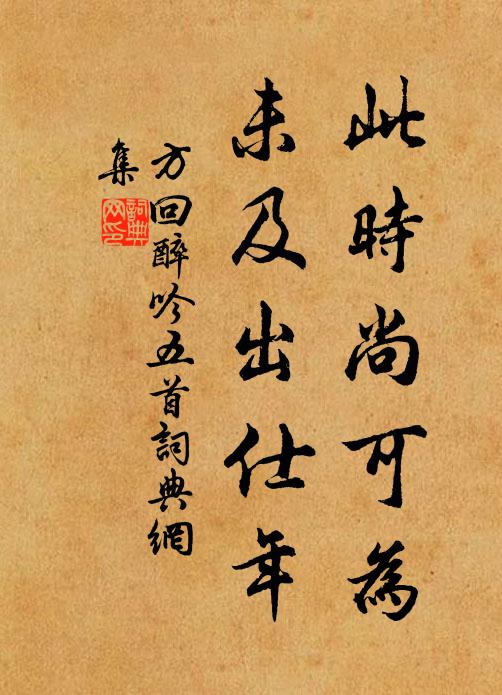 此時尚可為
未及出仕年
方回醉吟五首詞典網
集
詞典
网印